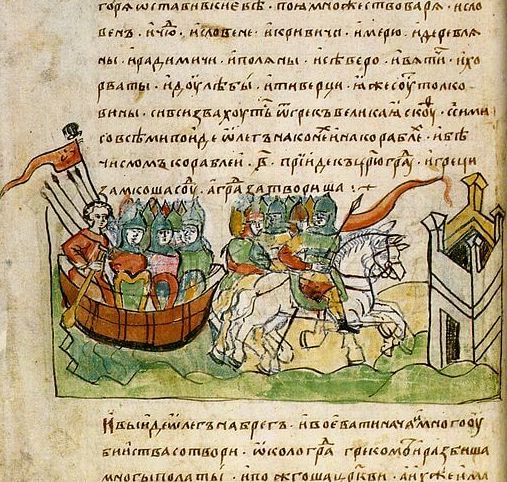 горѧ ѡставивкиевѣ · поꙗ множествоварѧ · исло
венъ · ичю̑ · исловене · икривичи · имерю · идеревлѧ
ны · ирадимичи · иполѧны · исѣверо · ивѧтичи · ихо
рваты · идоулѣбы · итиверци · ꙗжесоут̑ толко
вины · сивсизвахоут̑ ѿгрекъ великаꙗ скоуѳ̑ · ссими
совсѣмипоиде ѡлегънаконеинакорабле · ибѣ
числомъкораблеи · в҃ · прїидекъцр҃югра̑ · игреци
замкошасоу̑ · агра̑ затвориша ·
ивыидеѡлегънабрегъ · ивоеватинача̑ многооу
биисвасотвори · ѡкологра̑ грекомъ иразбиша
многыполаты · ипожгошацр҃кви · аихжеима